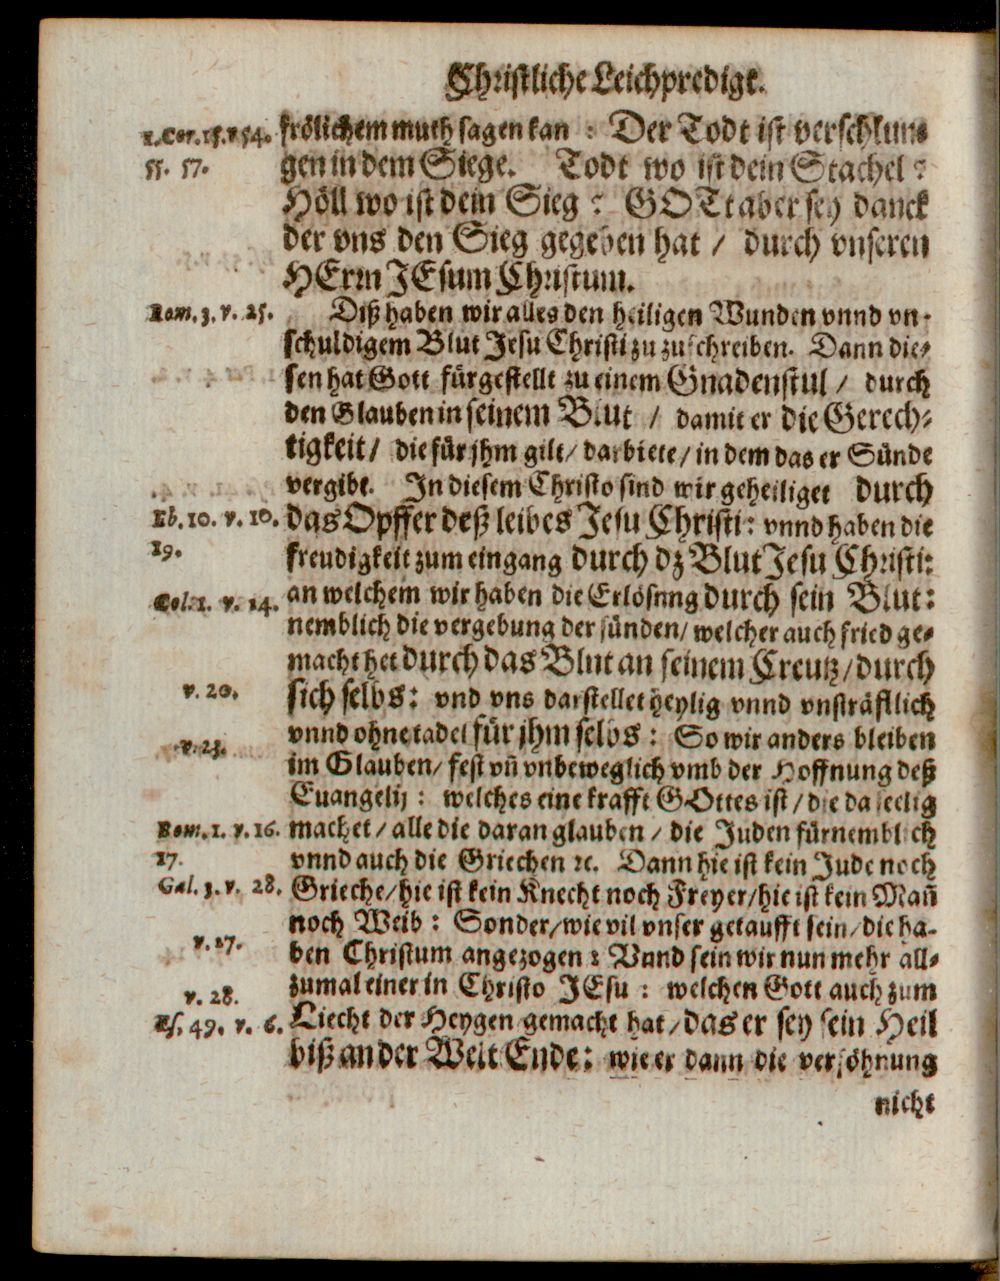 Christliche Leichpredigt.
1. Cor. 15. v 54. frölichem muth sagen kan : Der Todt ist verschlun⸗
55. 57. gen in dem Siege. Todt wo ist dein Stachel ?
Höll wo ist dein Sieg ? GOTt aber sey danck
der vns den Sieg gegeben hat / durch vnseren
HErrn JEsum Christum.
Rom. 3. v. 25. Diß haben wir alles den heiligen Wunden vnnd vn⸗
schuldigem Blut Jesu Christi zu zuschreiben. Dann die⸗
sen hat Gott fürgestellt zu einem Gnadenstul / durch
den Glauben in seinem Blut / damit er die Gerech⸗
tigkeit / die für jhm gilt / darbiete / in dem das er Sünde
vergibt. In diesem Christo sind wir geheiliget durch
Eb. 10. v. 10. das Opffer deß leibes Jesu Christi: vnnd haben die
19. freudigkeit zum eingang durch dz Blut Jesu Christi:
Col. 1. v. 14. an welchem wir haben die Erlösnng durch sein Blut:
nemblich die vergebung der sünden / welcher auch fried ge⸗
macht het durch das Blut an seinem Creutz / durch
v. 20. sich selbs: vnd vns darstellet heylig vnnd vnsträfflich
vnnd ohne tadel für jhm selbs : So wir anders bleiben
v. 23. im Glauben / fest vn̄ vnbeweglich vmb der Hoffnung deß
Euangelij : welches eine krafft GOttes ist / die da seelig
Rom. 1. v. 16. machet / alle die daran glauben / die Juden fürnemblich
17. vnnd auch die Griechen ꝛc. Dann hie ist kein Jude noch
Gal. 3. v. 28. Grieche / hie ist kein Knecht noch Freyer / hie ist kein Man̄
noch Weib : Sonder / wie vil vnser getaufft sein / die ha⸗
v. 27. ben Christum angezogen : Vnnd sein wir nun mehr all⸗
zumal einer in Christo JEsu : welchen Gott auch zum
v. 28.
Es. 49. v. 6. Liecht der Heygen gemacht hat / das er sey sein Heil
biß an der Welt Ende: wie er dann die versöhnung
nicht